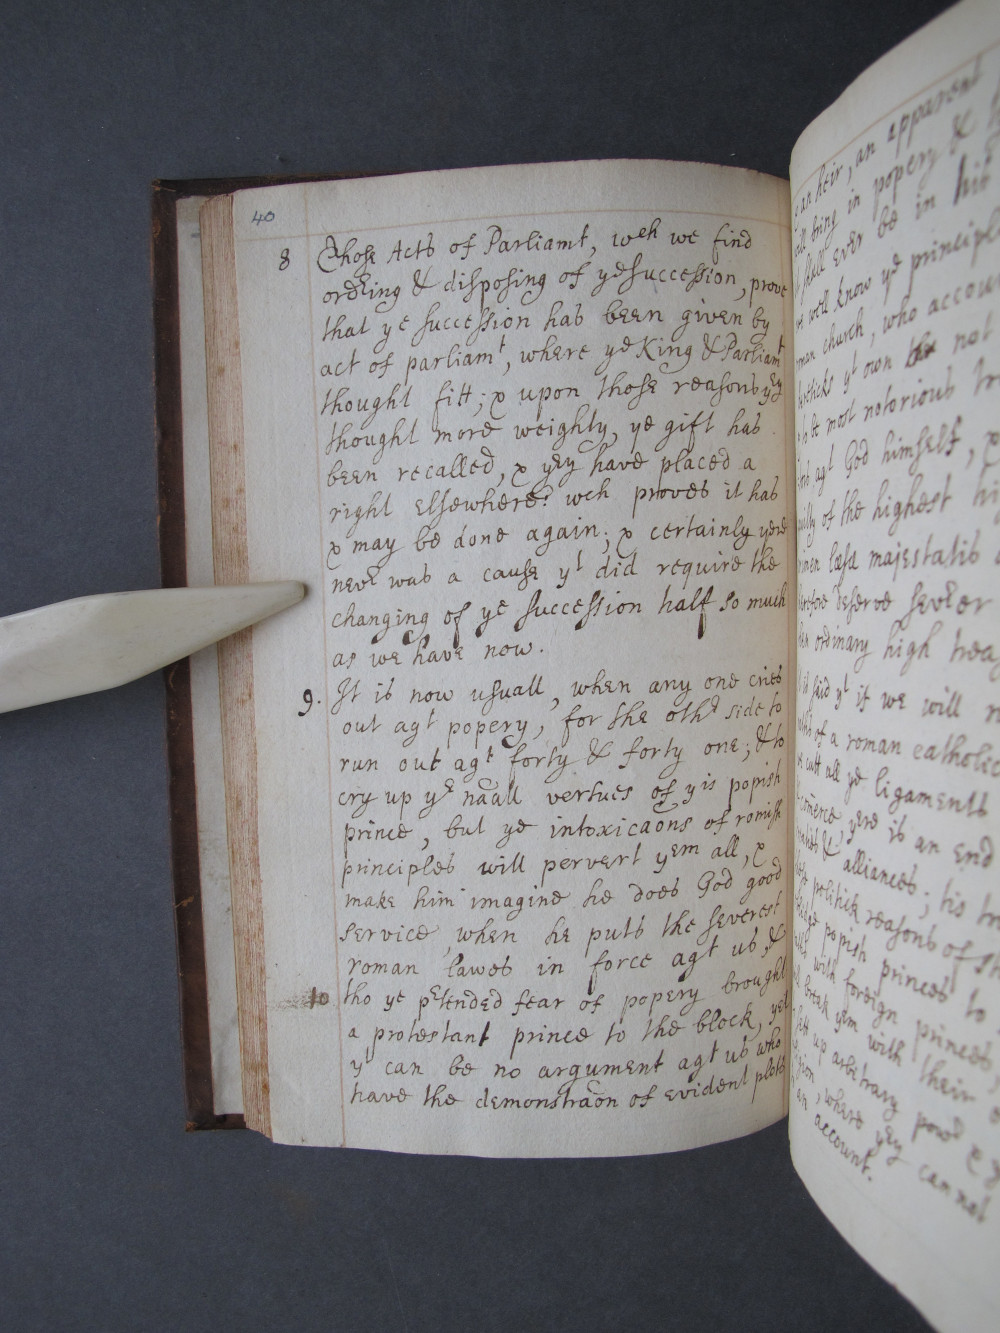 40
8 Those Acts of Parliamt, wch we find
ordering & disposing of ye succession, prove
that ye succession has been given by
act of parliamt, where ye King & Parliamt
thought fitt; & upon those reasons yey
thought more weighty, ye gift has
been recalled, & yey have placed a
right elsewhere: wch proves it has
& may be done again; & certainly yere
never was a cause yt did require the
changing of ye succession half so much
as we have now.
9. It is now usuall, when any one cries
out agt popery, for the other side to
run out agt forty & forty one; & to
cry up ye naall vertues of yis popish
prince, but ye intoxicaons of romish
principles will pervert yem all, &
make him imagine he does God good
service, when he puts the severest
roman lawes in force agt us, &
10 tho ye prtended fear of popery brought
a protestant prince to the block, yet
yt can be no argument agt us who
have the demonstraon of evident plots
an heir, an apparent
bring in popery &
shall ever be in his
we well know ye principles
church, who account
hereticks yt own not
be most notorious
agt God himself, &
guilty of the highest
crimen læsæ majestatis
therefore deserve severer
ordinary high trea
said yt if we will
of a roman catholic
cutt all ye ligaments
comerce, yere is an end
& alliances; tis
politick reasons of
popish princes to
with foreign princes,
break yem with their
sett up arbetrary power &
where yey cannot
an account.